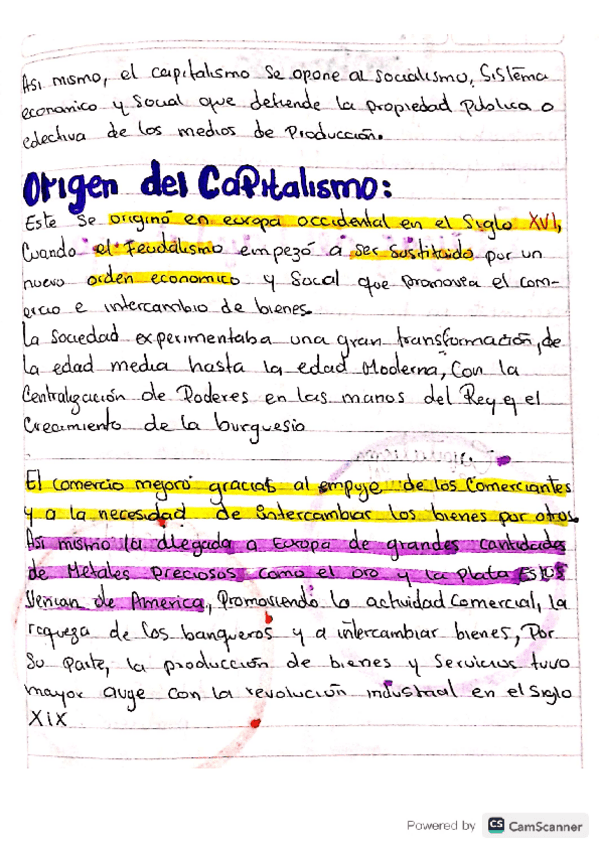 Asi mismo, el capitalismo se opone al socialismo, Sistema
economico y social que defiende la propiedad publica o
colectiva de los medios de Producción.
Origen del Capitalismo:
Este se originó en europa occidental en el Siglo XVI,
Cuando el Feudalismo empezó a ser sustituido por un
nuevo orden economico y Social que promovia el com-
ercio e intercambio de bienes.
la Sociedad experimentaba una gran transformación, de
la edad media hasta la edad Moderna, Con la
Centralización de Poderes en las manos del Rey e el
Crecimiento de la burguesia
El comercio mejoró gracias al empuje de los Comerciantes
y a la necesidad de intercambiar los bienes por otros.
Asi mismo la llegada a Europa de grandes cantidades
de Metales Preciosos como el oro y la Plata Estos
Venian de America, Promoviendo la actividad Comercial, la
riqueza de los banqueros y a intercambiar bienes, Por
Su Parte, la producción de bienes y Servicios tuvo
mayor auge con la revolución industrial en el Siglo
XIX
Powered by CS CamScanner